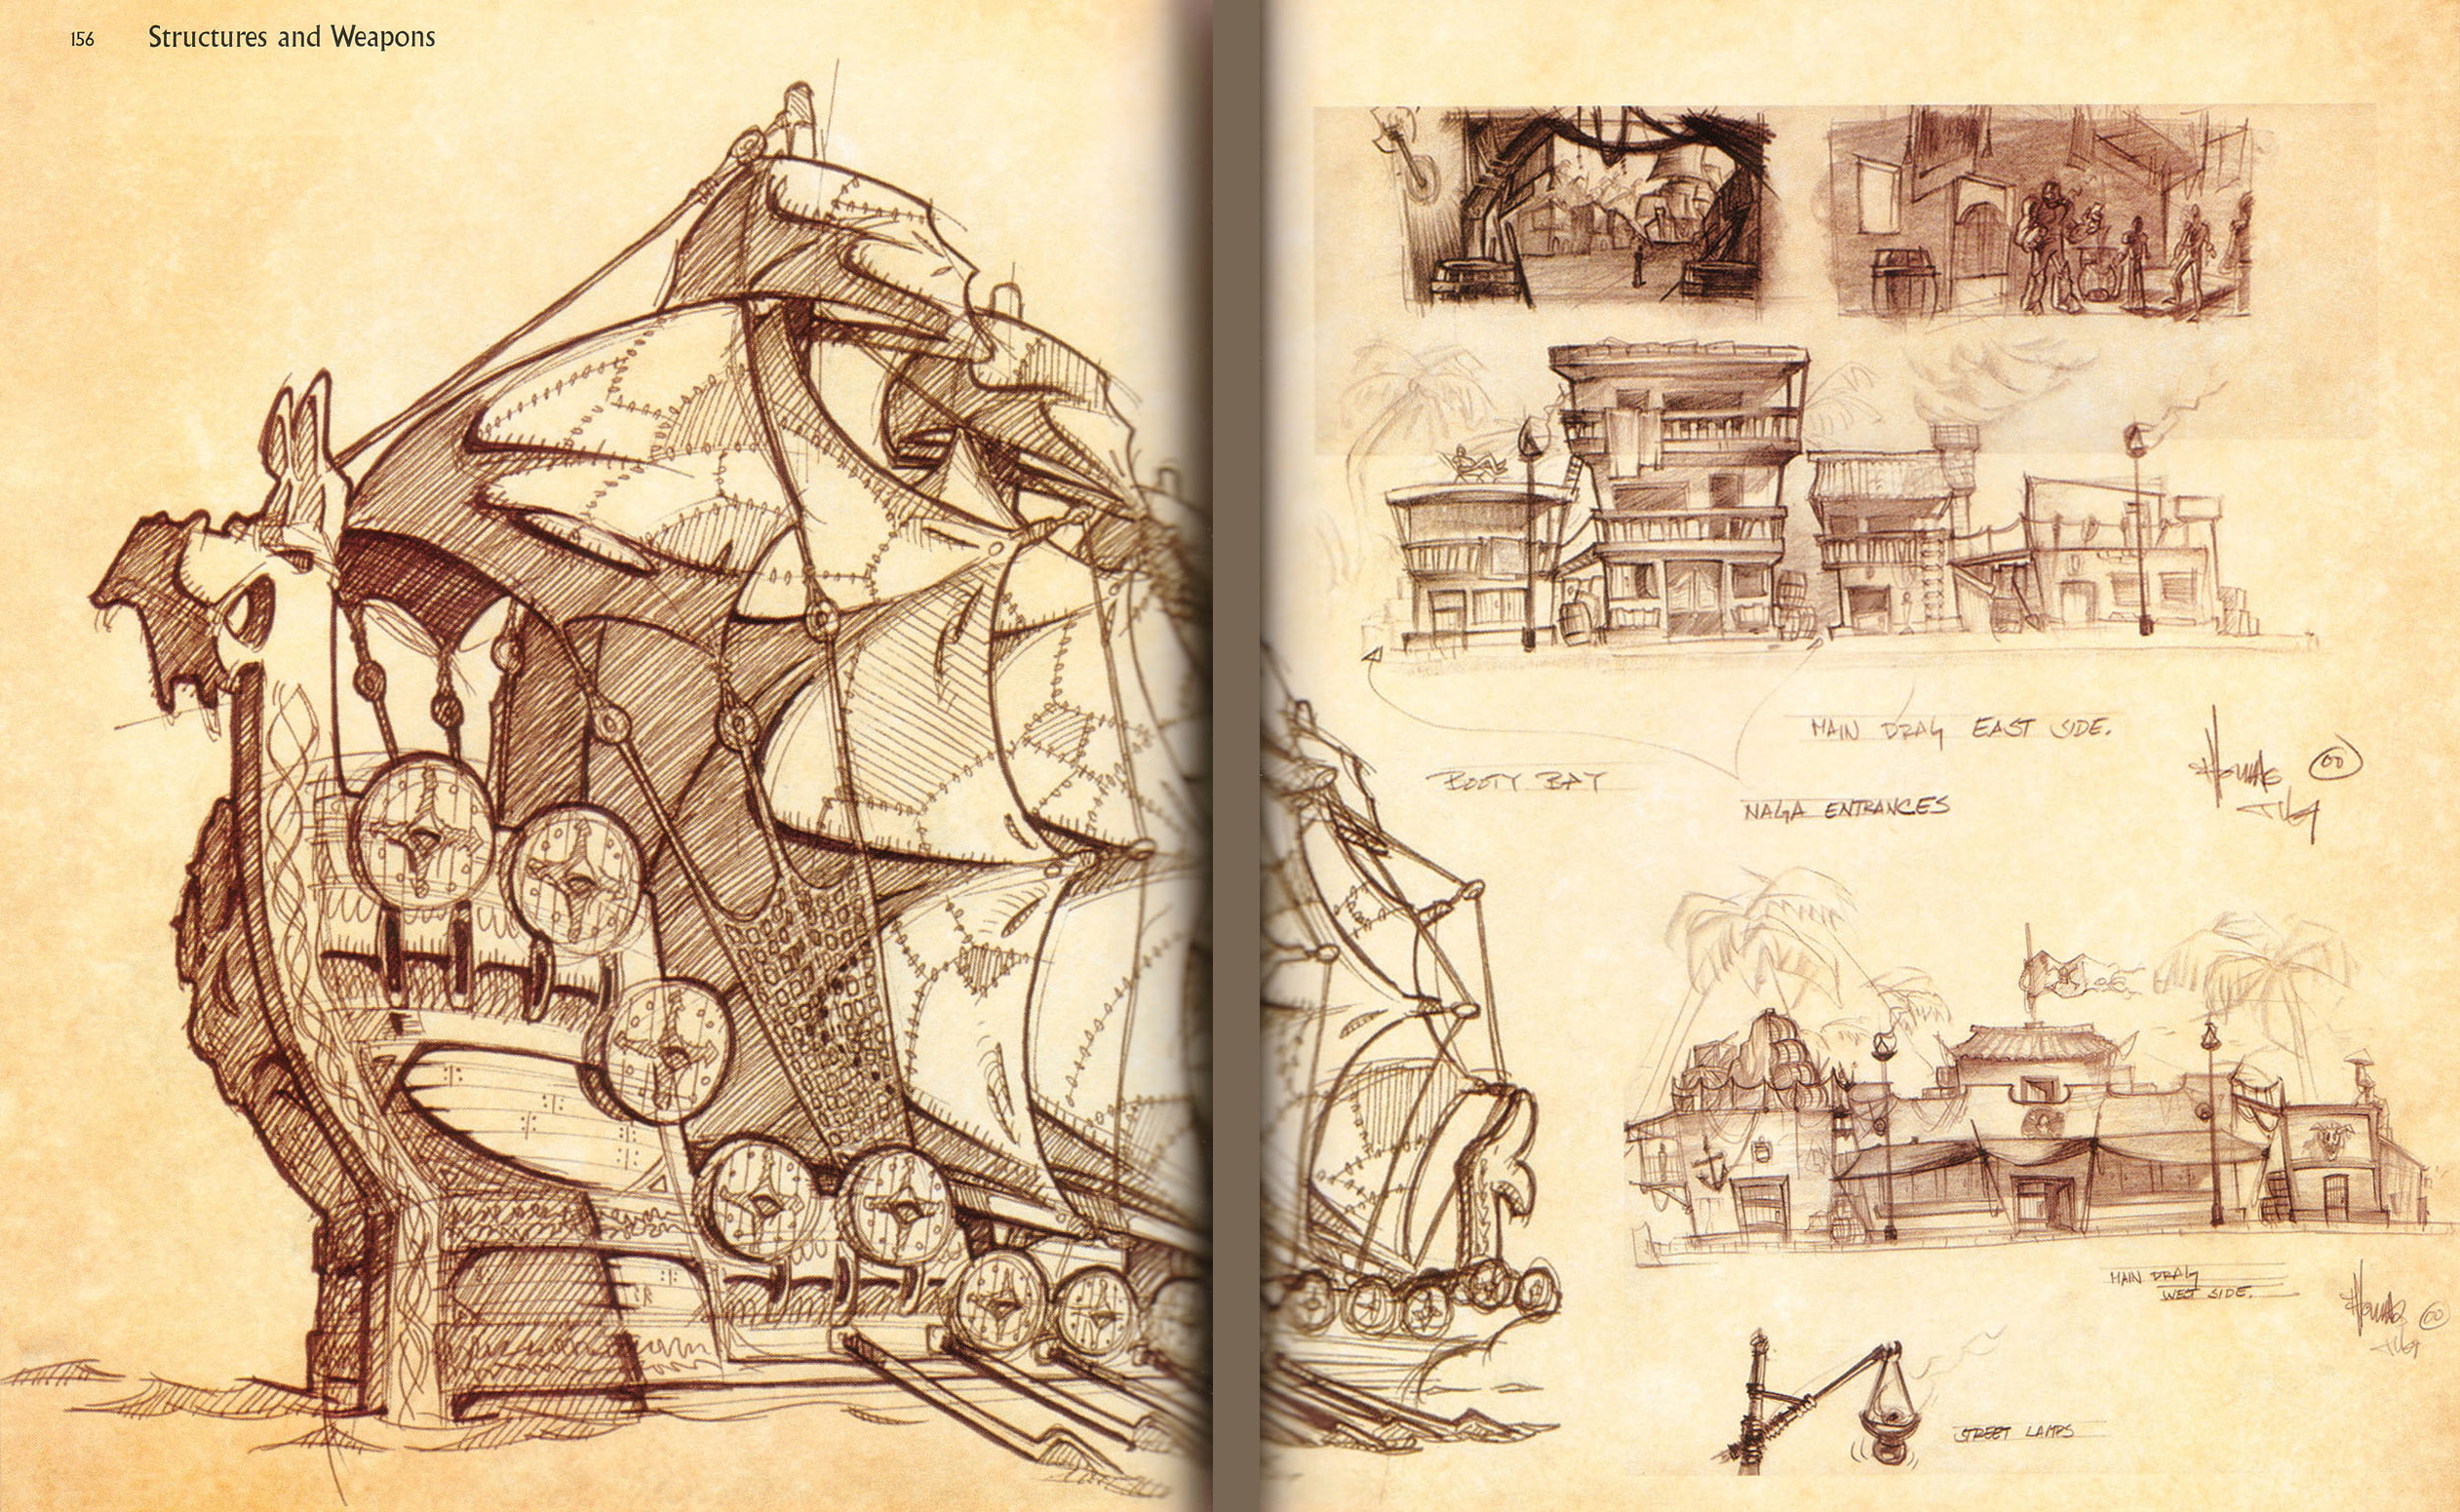 156 Structures and Weapons
MAIN DRAG EAST SIDE.
BOOTY BAY
NAGA ENTRANCES
00
MAIN DRAG
WEST SIDE.
00
STREET LAMPS